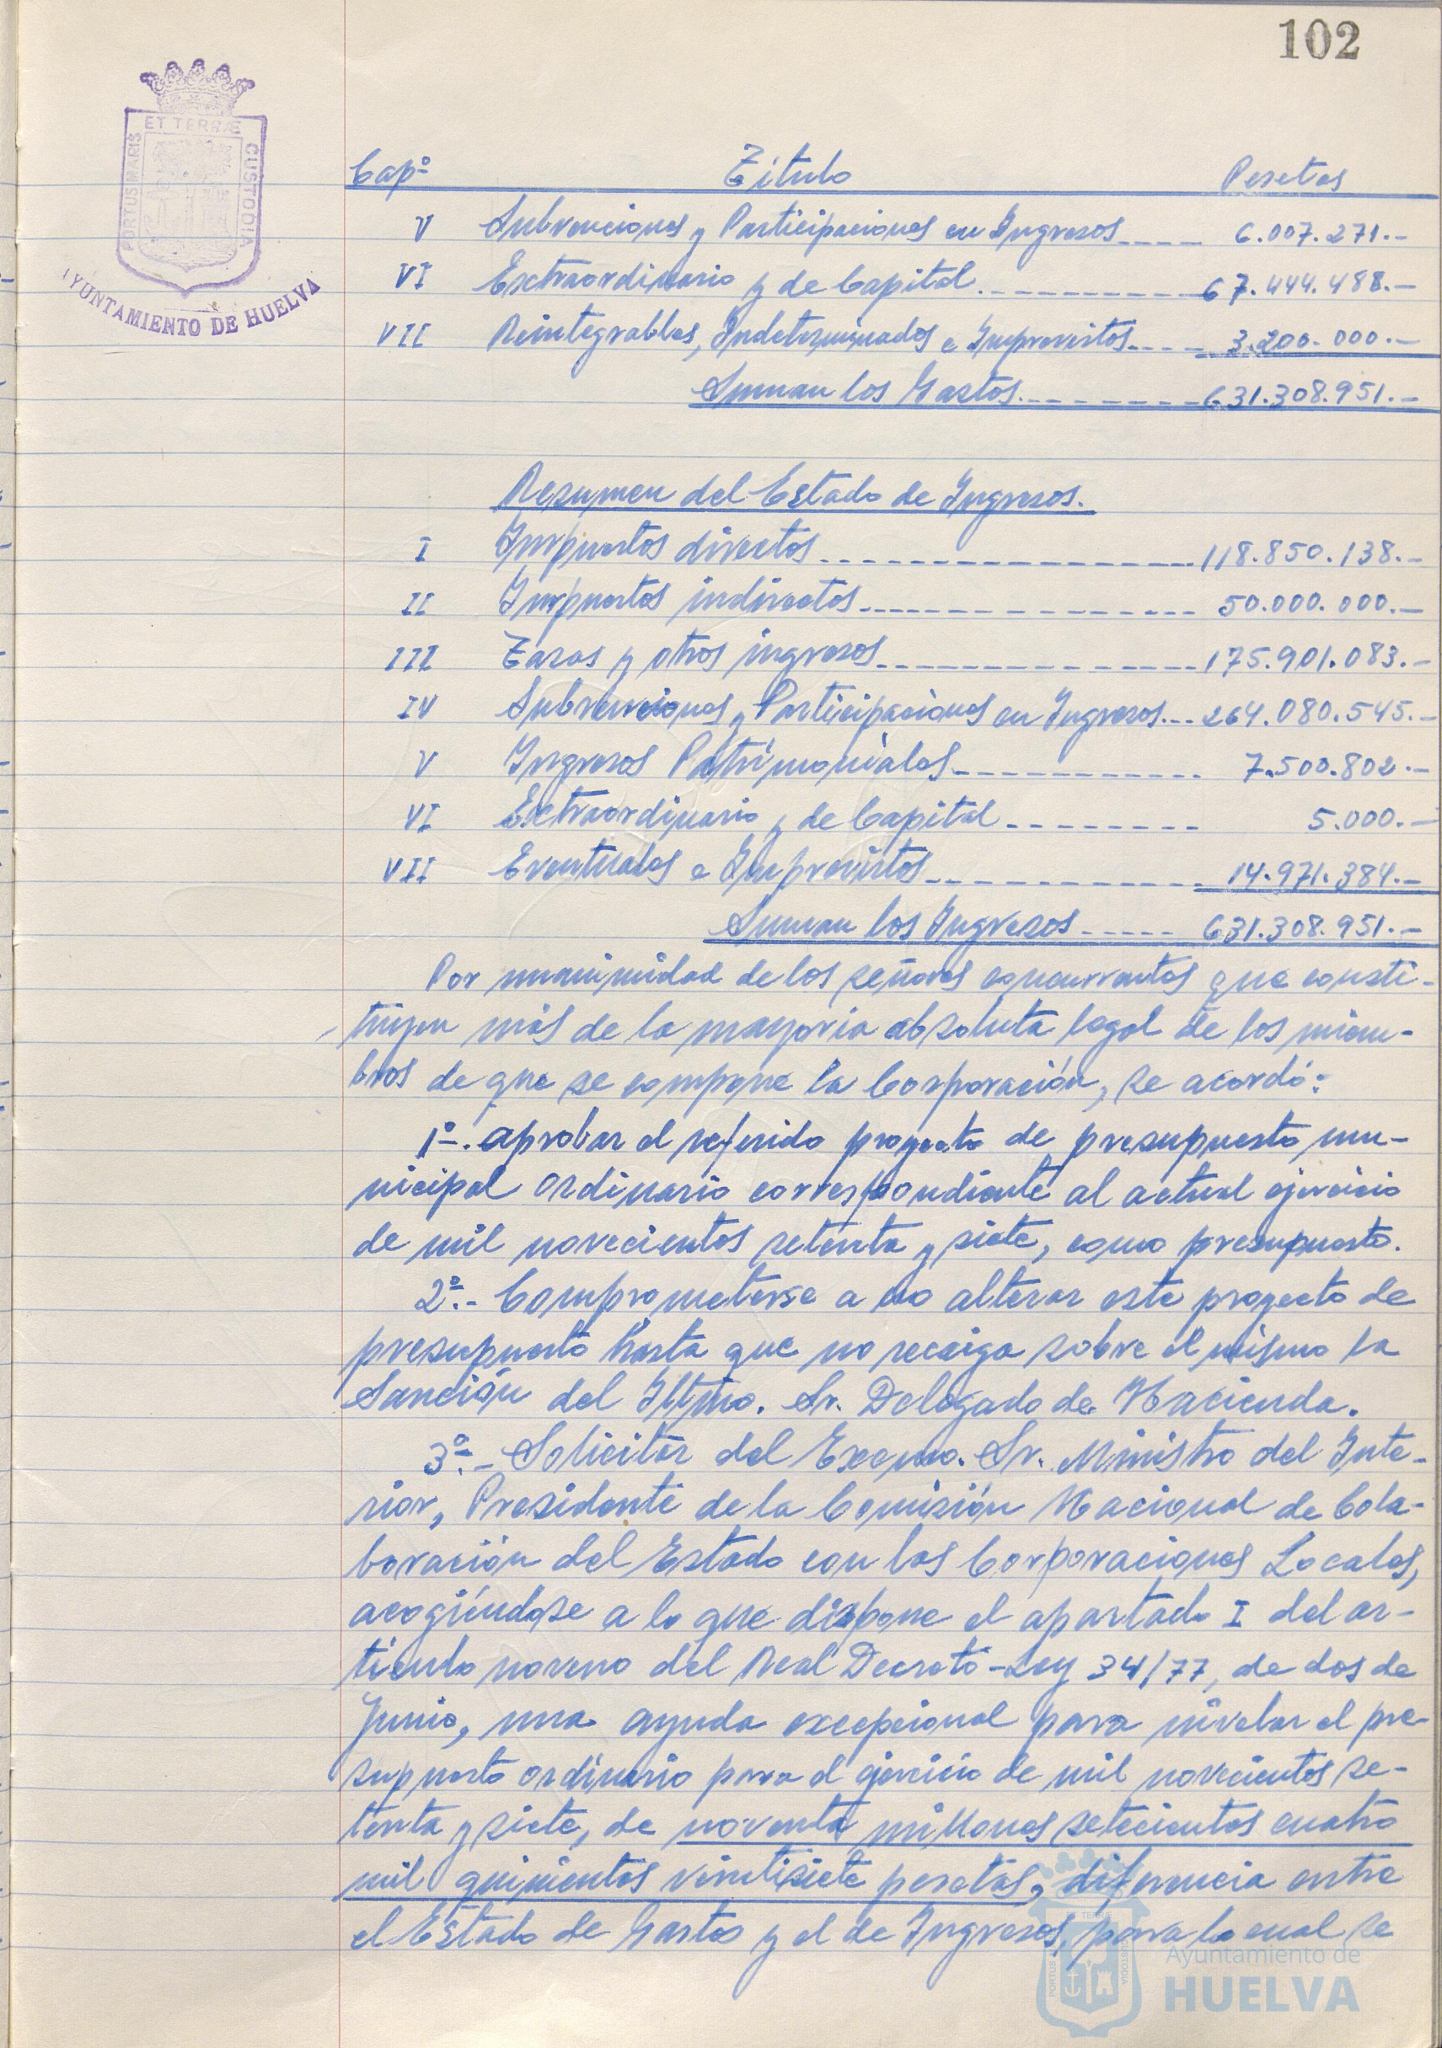 102
PORTUS MARIS
ET TERRÆ
CUSTODIA
AYUNTAMIENTO DE HUELVA
Capº Titulo Pesetas
V Subvenciones y Participaciones en Ingresos.... 6.007.271.-
VI Extraordinario y de Capital.......... 67.444.488.-
VII Reintegrables, Indeterminados e Imprevistos.... 3.200.000.-
Suman los Gastos........ 631.308.951.-
Resumen del Estado de Ingresos.
I Impuestos directos................. 118.850.138.-
II Impuestos indirectos............... 50.000.000.-
III Tasas y otros ingresos.............. 175.901.083.-
IV Subvenciones y Participaciones en Ingresos... 264.080.545.-
V Ingresos Patrimoniales........... 7.500.802.-
VI Extraordinario y de Capital......... 5.000.-
VII Eventuales e Imprevistos............ 14.971.384.-
Suman los Ingresos..... 631.308.951.-
Por unanimidad de los señores concurrentes que consti-
tuyen más de la mayoria absoluta legal de los miem-
bros de que se compone la Corporación, se acordó:
1º-. aprobar el referido proyecto de presupuesto mu-
nicipal ordinario correspondiente al actual ejercicio
de mil novecientos setenta y siete, como presupuesto.
2º.- Comprometerse a no alterar este proyecto de
presupuesto hasta que no recaiga sobre el mismo la
Sanción del Iltmo. Sr. Delegado de Hacienda.
3º.- Solicitar del Excmo. Sr. Ministro del Inte-
rior, Presidente de la Comisión Nacional de Cola-
boración del Estado con las Corporaciones Locales,
acogiéndose a lo que dispone el apartado I del ar-
ticulo noveno del Real Decreto-Ley 34/77, de dos de
Junio, una ayuda excepcional para nivelar el pre-
supuesto ordinario para el ejercicio de mil novecientos se-
tenta y siete, de noventa millones setecientos cuatro
mil quinientos veintisiete pesetas, diferencia entre
el Estado de Gastos y el de Ingresos, para lo cual se
Ayuntamiento de
HUELVA